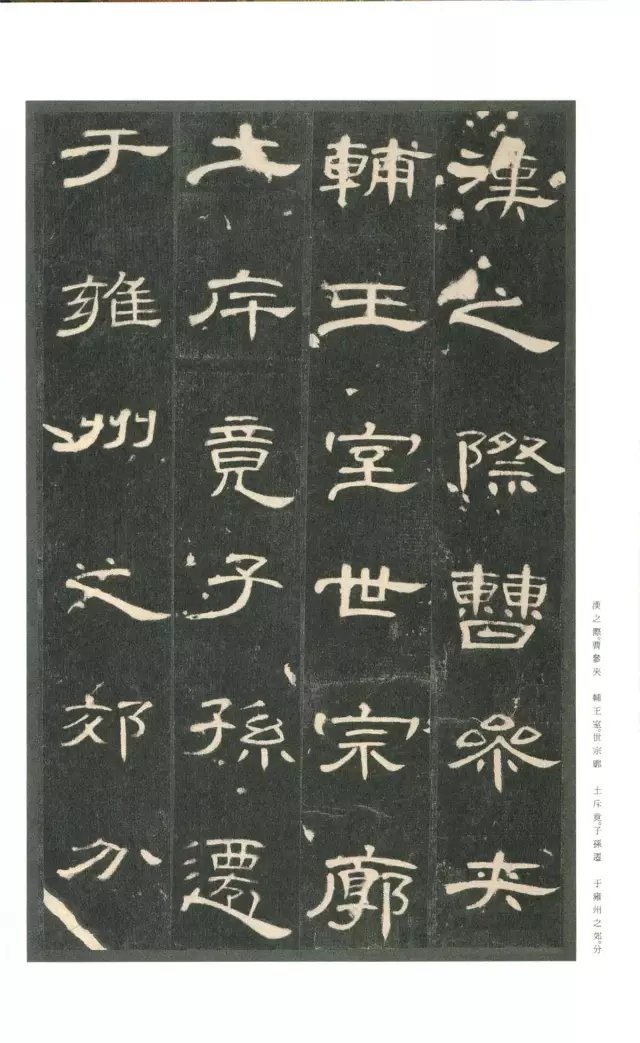 漢之際曹參夾
輔王室世宗廓
土斥竟子孫遷
于雍州之郊分
漢之際。曹參夾　輔王室。世宗廓　土斥竟。子孫遷　于雍州之郊。分